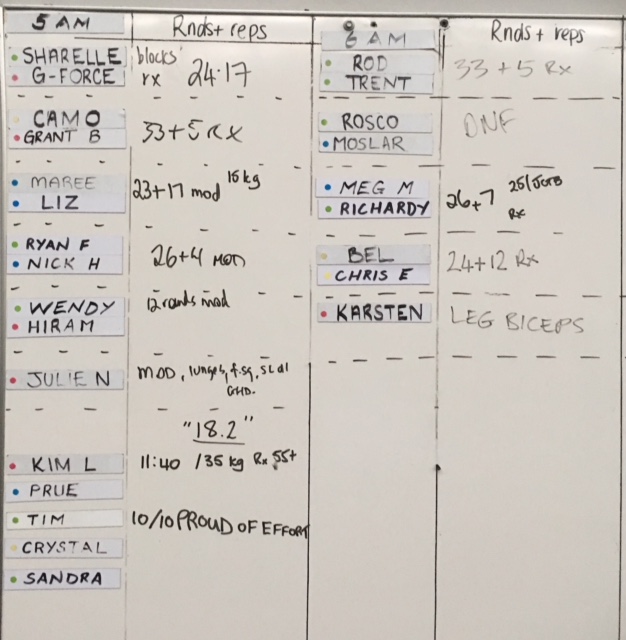 5 AM
Rnds+ reps
SHARELLE
G-FORCE
blocks'
rx 24.17
CAMO
GRANT B
33+5 RX
MAREE
LIZ
23+17 mod 15 kg
RYAN F
NICK H
26+4 MOD
WENDY
HIRAM
12 rounds mod
JULIE N
MOD, lunges, f.sq, SL dl
GHD.
"18.2"
KIM L
11:40 /35 kg Rx 55+
PRUE
TIM
10/10 PROUD OF EFFORT
CRYSTAL
SANDRA
6 AM
Rnds + reps
ROD
TRENT
33+5 Rx
ROSCO
MOSLAR
DNF
MEG M
RICHARDY
26+7 25/
Rx
BEL
CHRIS E
24+12 Rx
KARSTEN
LEG BICEPS